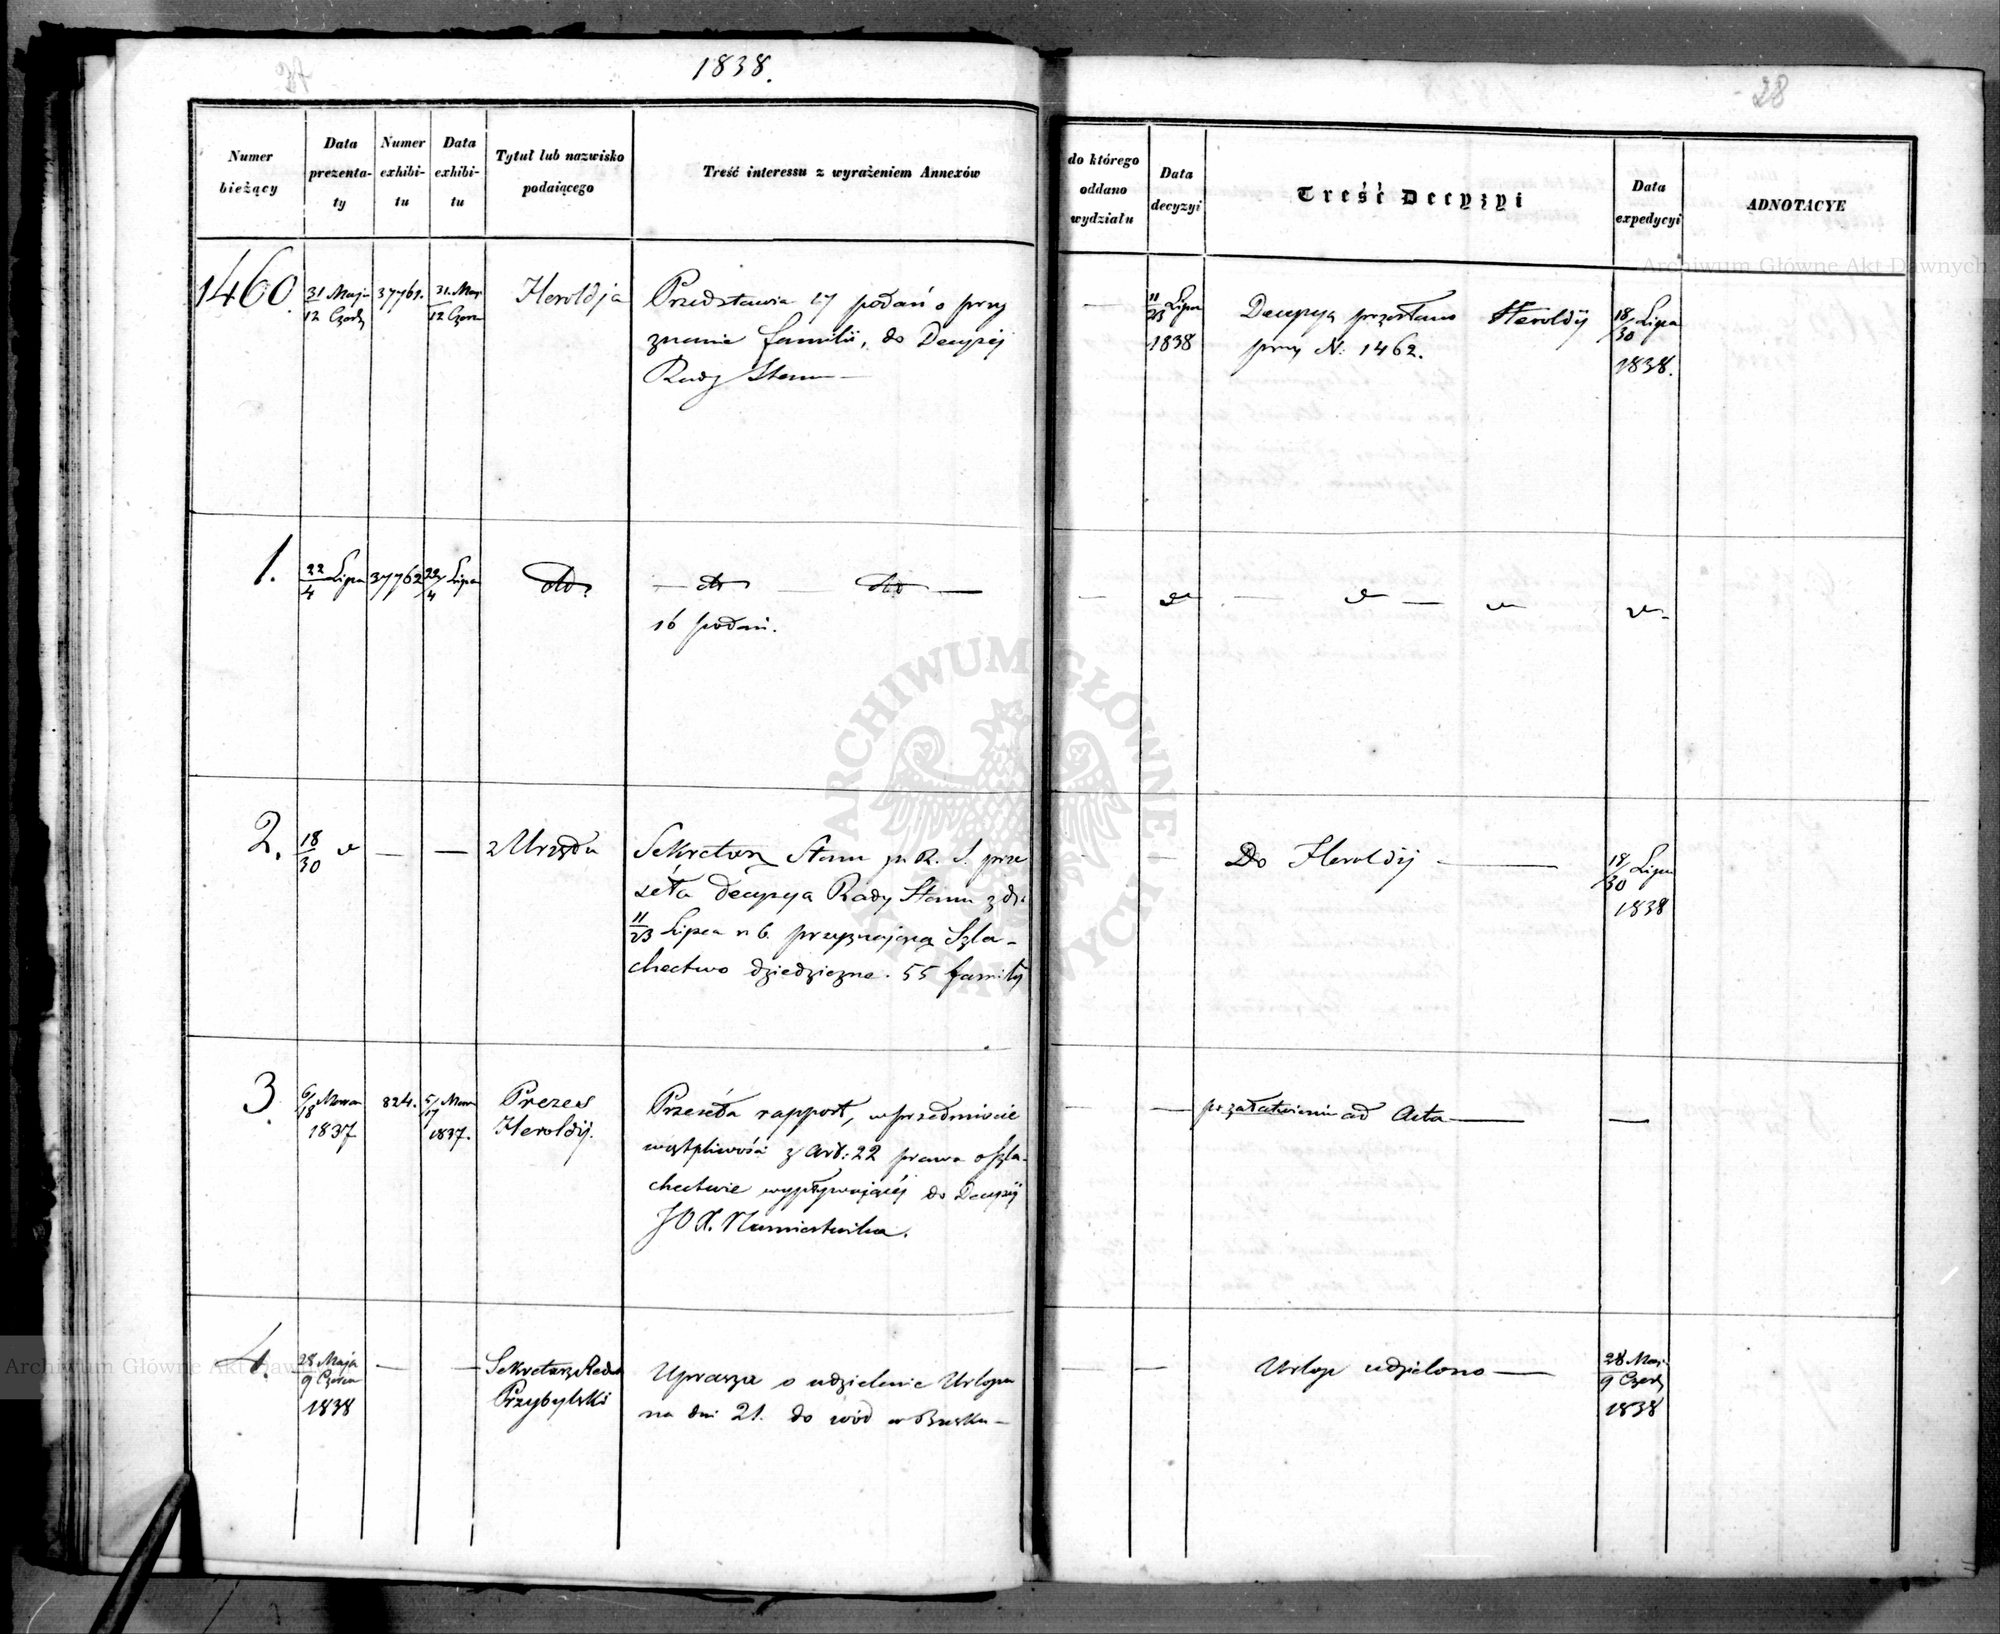 1838.
28
Numer
bieżący
Data
prezenta-
ty
Numer
exhibi-
tu
Data
exhibi-
tu
Tytuł lub nazwisko
podaiącego
Treść interessu z wyrażeniem Annexów
do którego
oddano
wydziału
Data
decyzyi
Treść Decyzyi
Data
expedycyi
ADNOTACYE
1460.
31 Maja
12 Czerw
37761.
31. Maj
12 Czerw
Heroldja
Przedstawia 17 podań o przy
znanie familii, do Decyzij
Rady Stanu —
—
11 Lipca
23
1838
Decyzya przesłano Heroldij
przy N: 1462.
18 Lipca
30
1838.
1.
22 Lipca
4
37762
22 Lipca
4
dto
— dto — dto —
16 podań.
2.
18
30
—
—
z Urzędu
Sekretarz Stanu pr. R. S. prze
seła Decyzya Rady Stanu z d.
11/23 Lipca r b. przyznającą Szla-
chectwo dziedziczne. 55 familij
—
Do Heroldij —
18 Lipca
30
1838
3.
6/18 Marca
1837
824.
5/17 Mar
1837.
Prezes
Heroldij.
Przeseła rapport, w przedmiocie
wątpliwości z art: 22 prawa o Szla-
chectwie wypływającej do Decyzij
JO X. Namiestnika.
—
—
po załatwieniu ad Acta —
—
4.
28 Maja
9 Czerwca
1838
—
—
Sekretarz Rady
Przybylski
Uprasza o udzielenie Urlopu
na dni 21. do wód w Busku —
—
—
Urlop udzielono —
28 Maj
9 Czerw
1838
Archiwum Główne Akt Dawnych
ARCHIWUM GŁÓWNE AKT DAWNYCH
Archiwum Główne Akt Dawnych